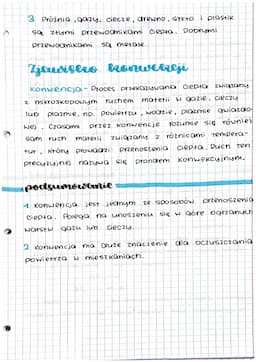 3 Próżnia, gazy, ciecze, drewno, szkło i plastik
są złymi przewodnikami ciepła. Dobrymi
przewodnikami są metale.
Zjawisko konwekcji
Konwencja - Proces przekazywania ciepła związany
z makroskopowym ruchem materii w gazie, cieczy
lub plazmie, np. powietrzu, wodzie, plazmie gwiazdo-
wej. Czasami przez konwencje rozumie się również
sam ruch materii związany z różnicami tempera-
tur, który prowadzi przenoszenia ciepła. Ruch ten
precyzyjniej nazywa się prądem konwekcyjnym.
podsumowanie
1 Konwencja jest jednym ze sposobów przenoszenia
ciepła. Polega na unoszeniu się w górę ogrzanych
warstw gazu lub cieczy.
2 Konwencja ma duże znaczenie dla oczyszczania
powietrza w mieszkaniach.